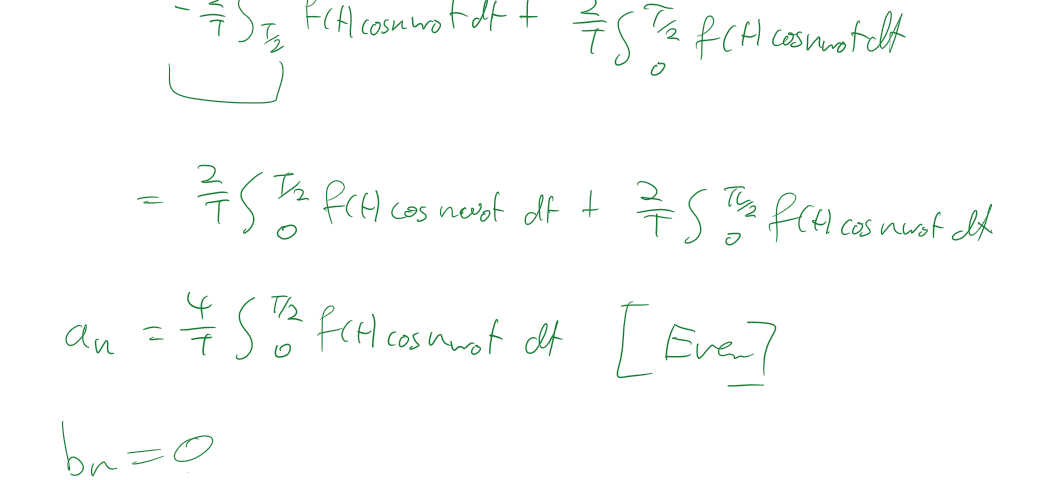 - 2/T ∫_{T/2} f(t) cos nω₀t dt + 2/T ∫_0^{T/2} f(t) cos nω₀t dt
= 2/T ∫_0^{T/2} f(t) cos nω₀t dt + 2/T ∫_0^{T/2} f(t) cos nω₀t dt
aₙ = 4/T ∫_0^{T/2} f(t) cos nω₀t dt [Even]
bₙ = 0